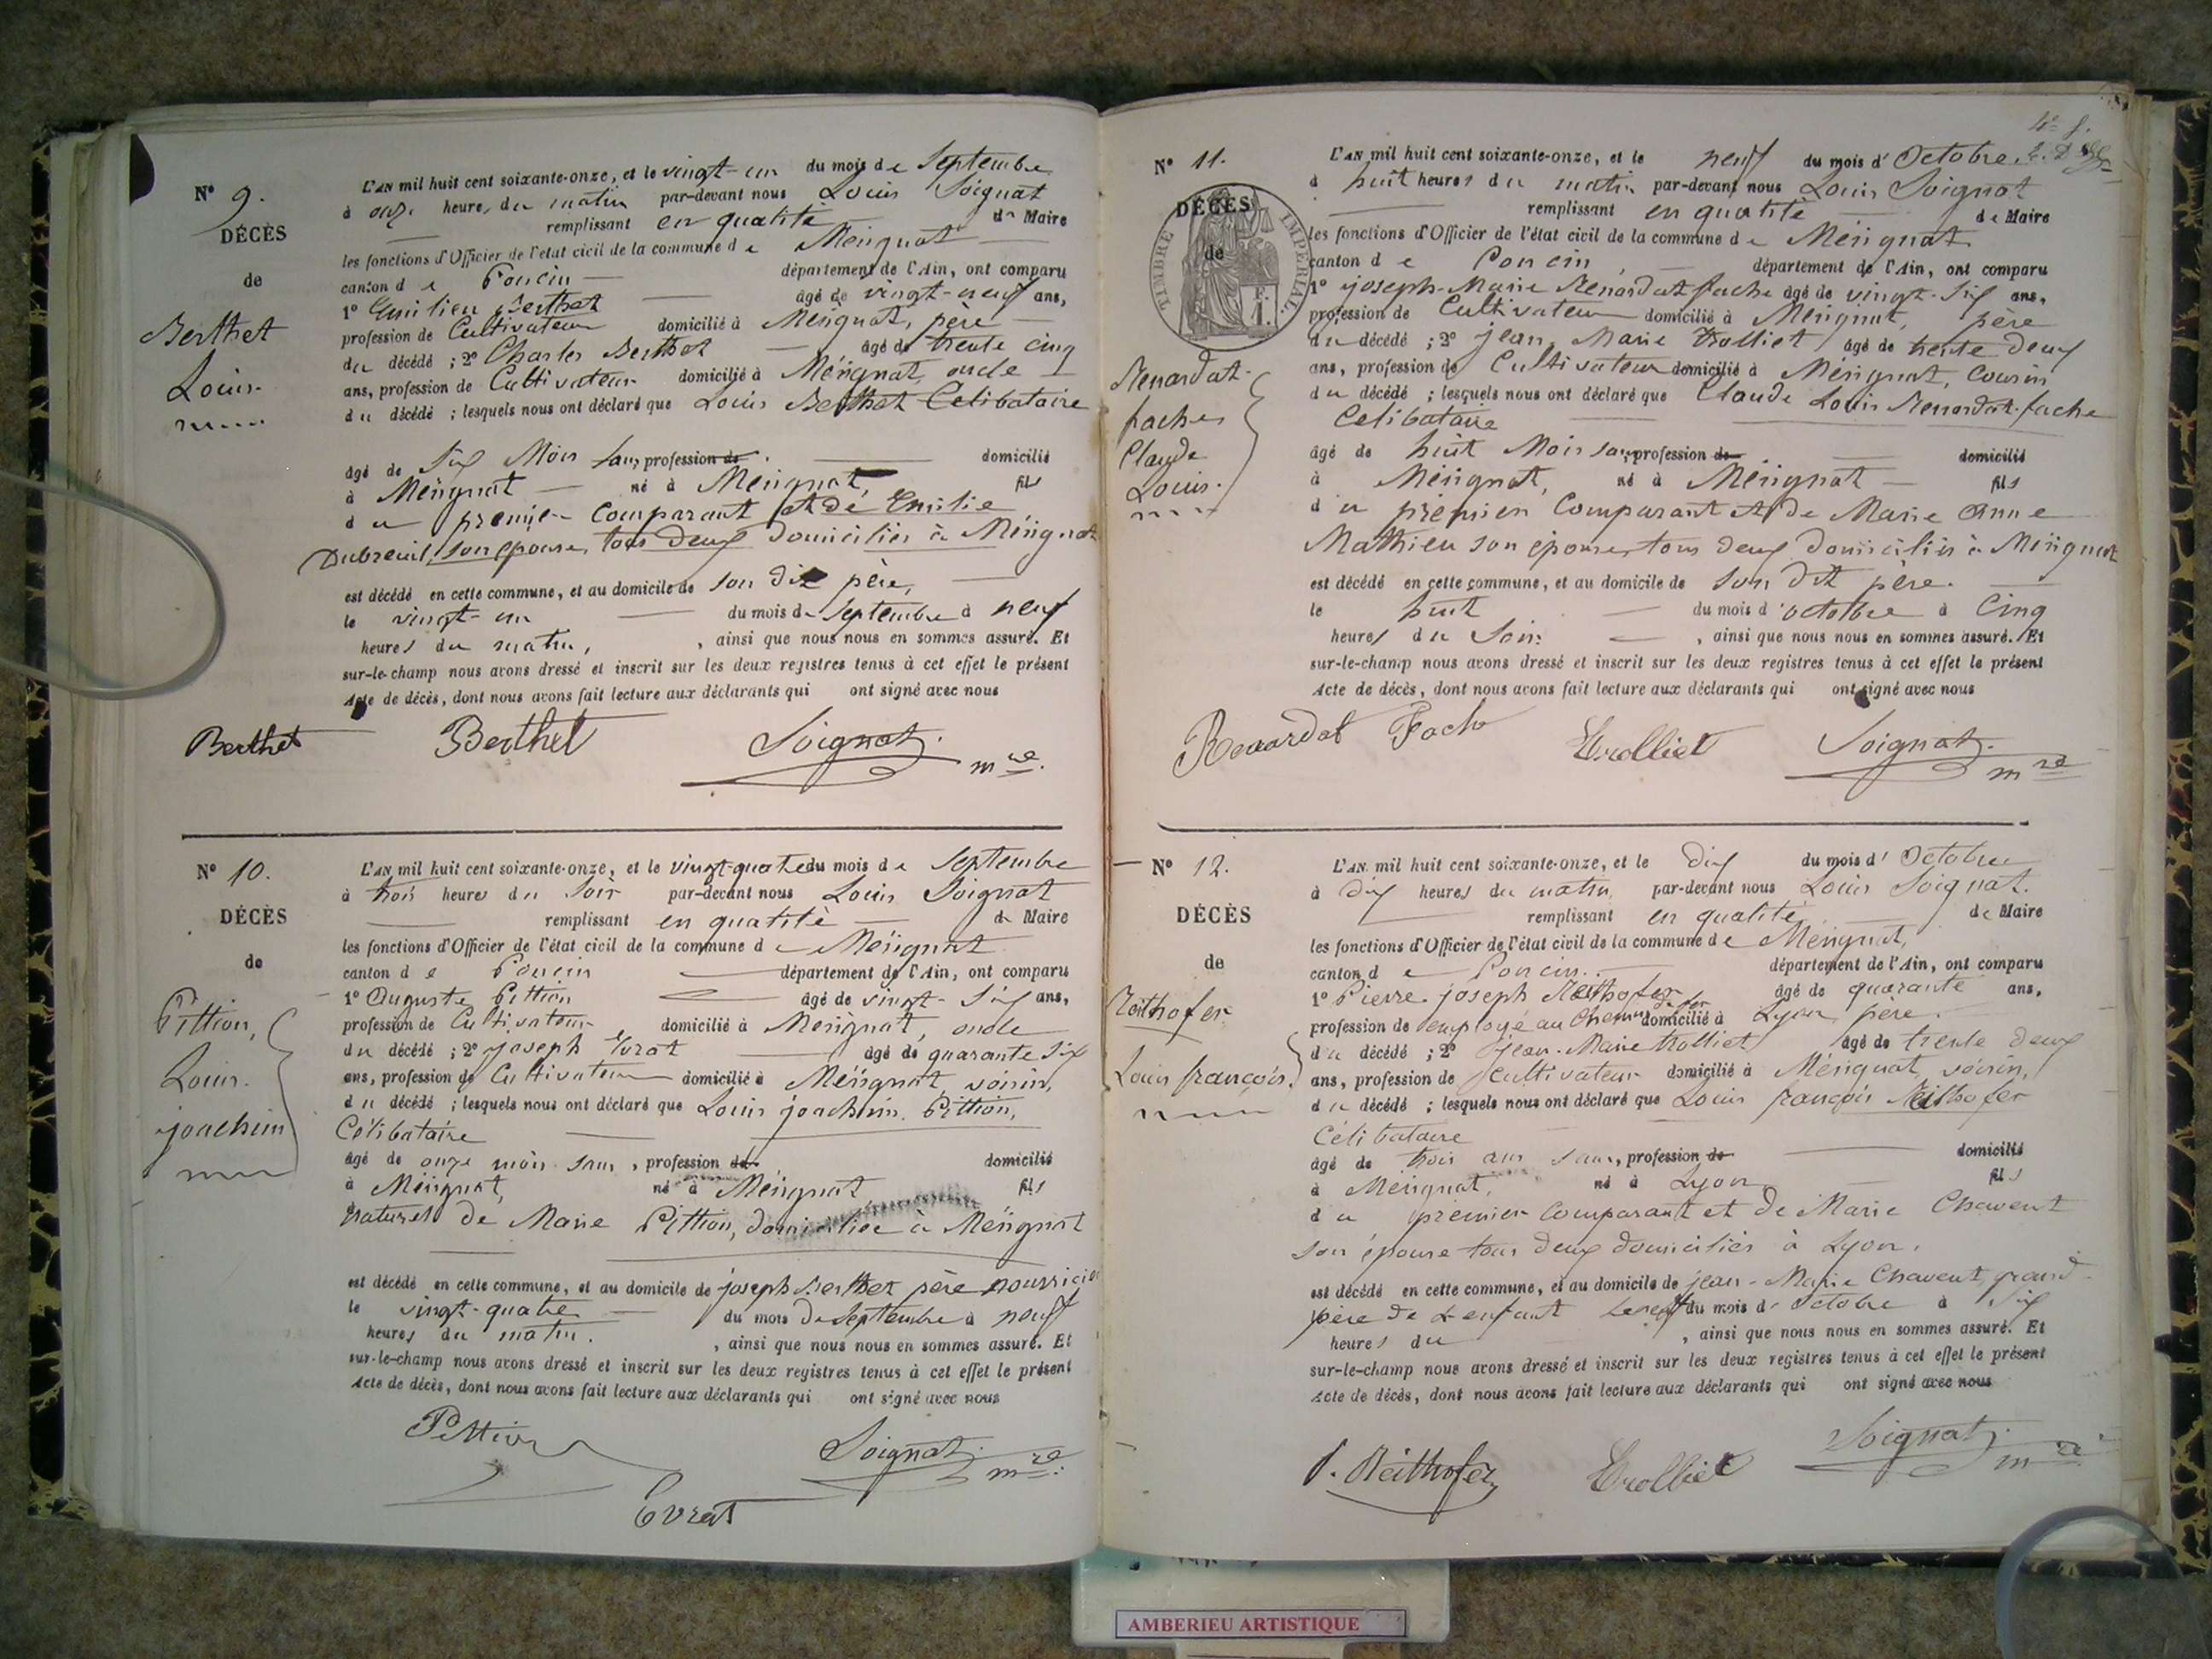 N° 9.
DÉCÈS
de
Berthet
Louis
L'AN mil huit cent soixante-onze, et le vingt-un du mois de Septembre
à onze heures du matin par-devant nous Louis Soignat
remplissant en qualité de Maire
les fonctions d'Officier de l'état civil de la commune de Mérignat
canton de Poncin département de l'Ain, ont comparu
1° Emilien Berthet âgé de vingt-neuf ans,
profession de Cultivateur domicilié à Mérignat, père
du décédé ; 2° Charles Berthet âgé de trente cinq
ans, profession de Cultivateur domicilié à Mérignat, oncle
du décédé ; lesquels nous ont déclaré que Louis Berthet Célibataire
âgé de Six Mois sans profession de domicilié
à Mérignat né à Mérignat, fils
du premier Comparant et de Emilie
Dubreuil, son épouse, tous deux domiciliés à Mérignat
est décédé en cette commune, et au domicile de son dit père,
le vingt-un du mois de Septembre à neuf
heures du matin, , ainsi que nous nous en sommes assuré. Et
sur-le-champ nous avons dressé et inscrit sur les deux registres tenus à cet effet le présent
Acte de décès, dont nous avons fait lecture aux déclarants qui ont signé avec nous
Berthet Berthet Soignat. mre.
N° 10.
DÉCÈS
de
Pittion,
Louis
joachim
L'AN mil huit cent soixante-onze, et le vingt-quatre du mois de Septembre
à trois heures du Soir par-devant nous Louis Soignat
remplissant en qualité de Maire
les fonctions d'Officier de l'état civil de la commune de Mérignat
canton de Poncin département de l'Ain, ont comparu
1° Auguste Pittion âgé de vingt-Six ans,
profession de Cultivateur domicilié à Mérignat, oncle
du décédé ; 2° joseph Evrat âgé de quarante Six
ans, profession de Cultivateur domicilié à Mérignat, voisin,
du décédé ; lesquels nous ont déclaré que Louis joachim Pittion,
Célibataire
âgé de onze mois sans, profession de domicilié
à Mérignat, né à Mérignat, fils
naturel de Marie Pittion, domiciliée à Mérignat
est décédé en cette commune, et au domicile de joseph Berthet père nourricier
le vingt-quatre du mois de Septembre à neuf
heures du matin. , ainsi que nous nous en sommes assuré. Et
sur-le-champ nous avons dressé et inscrit sur les deux registres tenus à cet effet le présent
Acte de décès, dont nous avons fait lecture aux déclarants qui ont signé avec nous
Pittion Soignat. mre.
Evrat
N° 11.
DÉCÈS
de
TIMBRE IMPÉRIAL
Renardat-
fache
Claude
Louis.
L'AN mil huit cent soixante-onze, et le neuf du mois d'Octobre
à huit heures du matin par-devant nous Louis Soignat
remplissant en qualité de Maire
les fonctions d'Officier de l'état civil de la commune de Mérignat
canton de Poncin département de l'Ain, ont comparu
1° joseph-Marie Renardat fache âgé de vingt-Six ans,
profession de Cultivateur domicilié à Mérignat, père
du décédé ; 2° jean Marie Trolliet âgé de trente deux
ans, profession de Cultivateur domicilié à Mérignat, Cousin
du décédé ; lesquels nous ont déclaré que Claude Louis Renardat-fache
Célibataire
âgé de huit Mois sans, profession de domicilié
à Mérignat, né à Mérignat fils
du premier Comparant et de Marie Anne
Mathieu son épouse, tous deux domiciliés à Mérignat
est décédé en cette commune, et au domicile de son dit père.
le huit du mois d'octobre à Cinq
heures du Soir , ainsi que nous nous en sommes assuré. Et
sur-le-champ nous avons dressé et inscrit sur les deux registres tenus à cet effet le présent
Acte de décès, dont nous avons fait lecture aux déclarants qui ont signé avec nous
Renardat Fache Trolliet Soignat. mre
N° 12.
DÉCÈS
de
Reithofer
Louis françois.
L'AN mil huit cent soixante-onze, et le dix du mois d'Octobre
à dix heures du matin par-devant nous Louis Soignat.
remplissant en qualité de Maire
les fonctions d'Officier de l'état civil de la commune de Mérignat,
canton de Poncin département de l'Ain, ont comparu
1° Pierre joseph Reithofer âgé de quarante ans,
profession de employé au Chemin de fer domicilié à Lyon père.
du décédé ; 2° jean-Marie Trolliet âgé de trente deux
ans, profession de Cultivateur domicilié à Mérignat, voisin,
du décédé ; lesquels nous ont déclaré que Louis françois Reithofer
Célibataire
âgé de trois ans sans, profession de domicilié
à Mérignat, né à Lyon fils
du premier Comparant et de Marie Chavent
son épouse tous deux domiciliés à Lyon.
est décédé en cette commune, et au domicile de jean-Marie Chavent, grand-
père de L'enfant le neuf du mois d'Octobre à Six
heures du , ainsi que nous nous en sommes assuré. Et
sur-le-champ nous avons dressé et inscrit sur les deux registres tenus à cet effet le présent
Acte de décès, dont nous avons fait lecture aux déclarants qui ont signé avec nous
P. Reithofer Trolliet Soignat. mre
AMBERIEU ARTISTIQUE